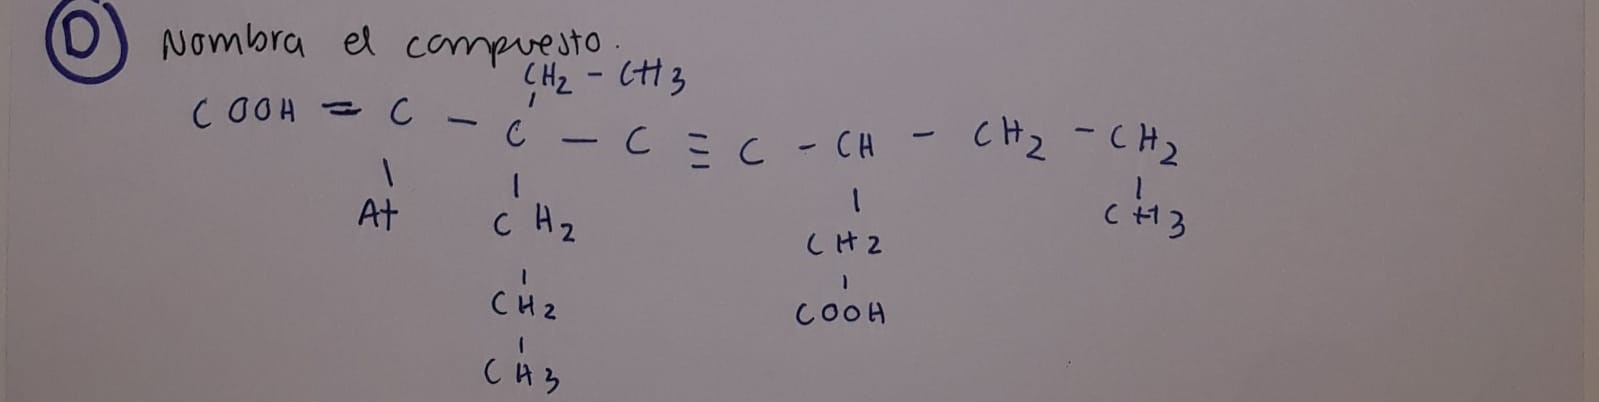 D Nombra el compuesto.
CH2 - CH3
COOH = C - C - C ≡ C - CH - CH2 - CH2
At CH2 CH2 CH3
CH2 COOH
CH3